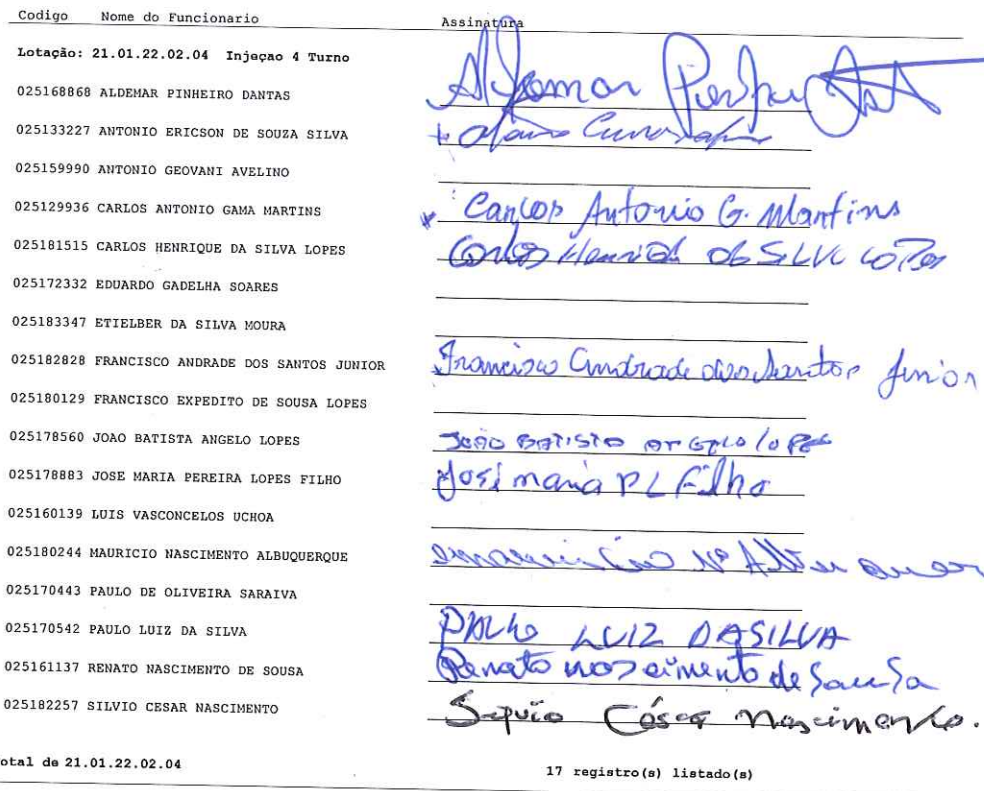 Codigo Nome do Funcionario Assinatura
Lotação: 21.01.22.02.04 Injeçao 4 Turno
025168868 ALDEMAR PINHEIRO DANTAS
025133227 ANTONIO ERICSON DE SOUZA SILVA
025159990 ANTONIO GEOVANI AVELINO
025129936 CARLOS ANTONIO GAMA MARTINS Carlos Antonio G. Martins
025181515 CARLOS HENRIQUE DA SILVA LOPES Carlos
025172332 EDUARDO GADELHA SOARES
025183347 ETIELBER DA SILVA MOURA
025182828 FRANCISCO ANDRADE DOS SANTOS JUNIOR Francisco Andrade dos Santos Junior
025180129 FRANCISCO EXPEDITO DE SOUSA LOPES
025178560 JOAO BATISTA ANGELO LOPES João Batista Angelo Lopes
025178883 JOSE MARIA PEREIRA LOPES FILHO José maria P L Filho
025160139 LUIS VASCONCELOS UCHOA
025180244 MAURICIO NASCIMENTO ALBUQUERQUE
025170443 PAULO DE OLIVEIRA SARAIVA
025170542 PAULO LUIZ DA SILVA PAULO LUIZ DA SILVA
025161137 RENATO NASCIMENTO DE SOUSA Renato nascimento de Sousa
025182257 SILVIO CESAR NASCIMENTO César Nascimento.
otal de 21.01.22.02.04 17 registro(s) listado(s)